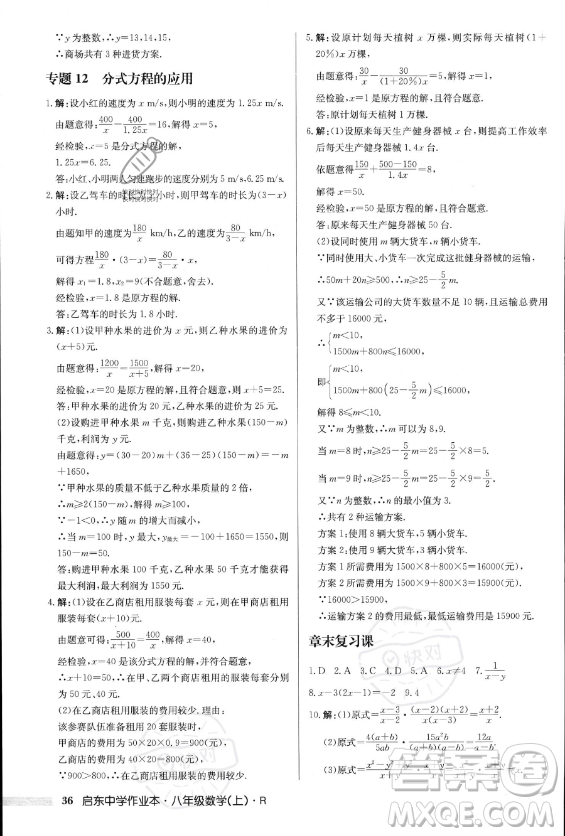 ∵y为整数,∴y=13,14,15,
∴商场共有3种进货方案.
专题12 分式方程的应用
1.解:设小红的速度为x m/s,则小明的速度为1.25x m/s.
由题意可得:400/x-400/1.25x=16,解得x=5,
经检验,x=5是分式方程的解,
1.25x=6.25.
答:小红、小明两人匀速跑步的速度为5 m/s,6.25 m/s.
2.解:设乙驾车的时长为x小时,则甲驾车的时长为(3-x)
小时.
由题知甲的速度为180/x km/h,乙的速度为80/3-x km/h,
可得方程180/x·(3-x)=80/3-x·x,
解得x₁=1.8,x₂=9(不符合题意,舍去).
经检验,x=1.8是原方程的解.
答:乙驾车的时长为1.8小时.
3.解:(1)设甲种水果的进价为x元,则乙种水果的进价为
(x+5)元.
由题意得1200/x=1500/x+5,解得x=20,
经检验,x=20是原方程的解,且x+5=25.
答:甲种水果的进价为20元,乙种水果的进价为25元.
(2)设购进甲种水果m千克,则购进乙种水果(150-m)
千克,利润为y元.
由题意得:y=(30-20)m+(36-25)(150-m)=-m
+1650,
∵甲种水果的重量不低于乙种水果重量的2倍,
∴m≥2(150-m),解得m≥100,
∵-1<0,则y随m的增大而减小,
∴当m=100时,y最大=-100+1650=1550(元).
答:购进甲种水果100千克,乙种水果50千克才能获得
最大利润,最大利润为1550元.
4.解:(1)设在乙商店租用服装每套x元,则在甲商店租用
服装每套(x+10)元.
由题意可得:500/x+10=400/x,解得:x=40,
经检验,x=40是该分式方程的解,并符合题意,
∴x+10=50.
答:在甲、乙两个商店租用的服装每套分别为50元,
40元.
(2)在乙商店租用服装的费用较少.理由如下:
该参赛队伍准备租用20套服装时,
甲商店的费用为50×20×0.9=900(元),
乙商店的费用为40×20=800(元),
∵900>800,
∴乙商店租用服装的费用较少.
5.解:设原计划每天植树x万棵,则实际每天植树(1+
20%)x万棵.
由题意得:30/x-30/(1+20%)x=5,解得:x=1,
经检验,x=1是原方程的解,且符合题意.
答:原计划每天植树1万棵.
6.解:(1)设原来每天生产健身器械x台,则提高工作效率
后每天生产健身器械1.4x台,
依题意得150/x+500-150/1.4x=8,
解得x=50.
经检验,x=50是原方程的解,且符合题意.
答:原来每天生产健身器械50台.
(2)设同时使用m辆大货车,n辆小货车,
∵同时使用大、小货车一次完成这批健身器械的运输,
∴50m+20n≥500,∴n≥25-5/2m.
又∵该该运输公司的大货车数量不足10辆,且运输费
用不多于16000元,
∴{m<10, 1500m+800n≤16000,
即{m<10, 1500m+800(25-5/2m)≤16000,
解得8≤m<10.
又∵m为整数,∴m可以为8,9.
当m=8时,n≥25-5/2m=25-5/2×8=5;
当m=9时,n≥25-5/2m=25-5/2×9=5/2.
又∵n为整数,∴n的最小值为3.
∴共有2种运输方案.
方案1:使用8辆大货车,5辆小货车;
方案2:使用9辆大货车,3辆小货车.
方案1所需费用为1500×8+800×5=16000(元),
方案2所需费用为1500×9+800×3=15900(元),
∵16000>15900,
∴运输方案2的费用最低,最低运输费用是15900元.
章末复习课
1.D 2.A 3.D 4.A 5.C 6.A 7.1/x-y
8.x-3(2x-1)=-2 9.4
10.解:(1)原式=x-3/x-2·(x+2)(x-2)/x(x-3)=x+2/x.
36 启东中学作业本·八年级数学(上)·R